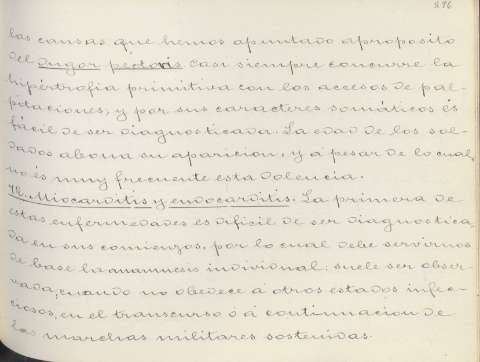 296
las causas que hemos apuntado aproposito
del angor pectoris. Casi siempre concurre la
hipértrofia primitiva con los accesos de pal-
pitaciones; y por sus caracteres somáticos és
fácil de ser diagnosticada. La edad de los sol-
dados abona su aparicion, y á pesar de lo cual,
no és muy frecuente esta dolencia.
72. Miocarditis y endocarditis. La primera de
estas enfermedades és difisil de ser diagnostica-
da en sus comienzos, por lo cual debe servirnos
de base la anamnesis individual; suele ser obser-
vada, cuando no obedece á otros estados infec-
ciosos, en el transcurso ó á continuacion de
las marchas militares sostenidas.